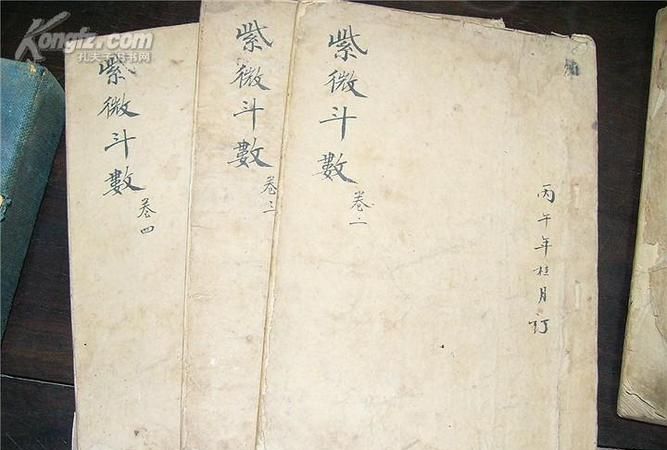 Kongfz.com
孔夫子旧书网
紫微斗數
卷四
紫微斗數
卷三
紫微斗數
丙午年桂月订